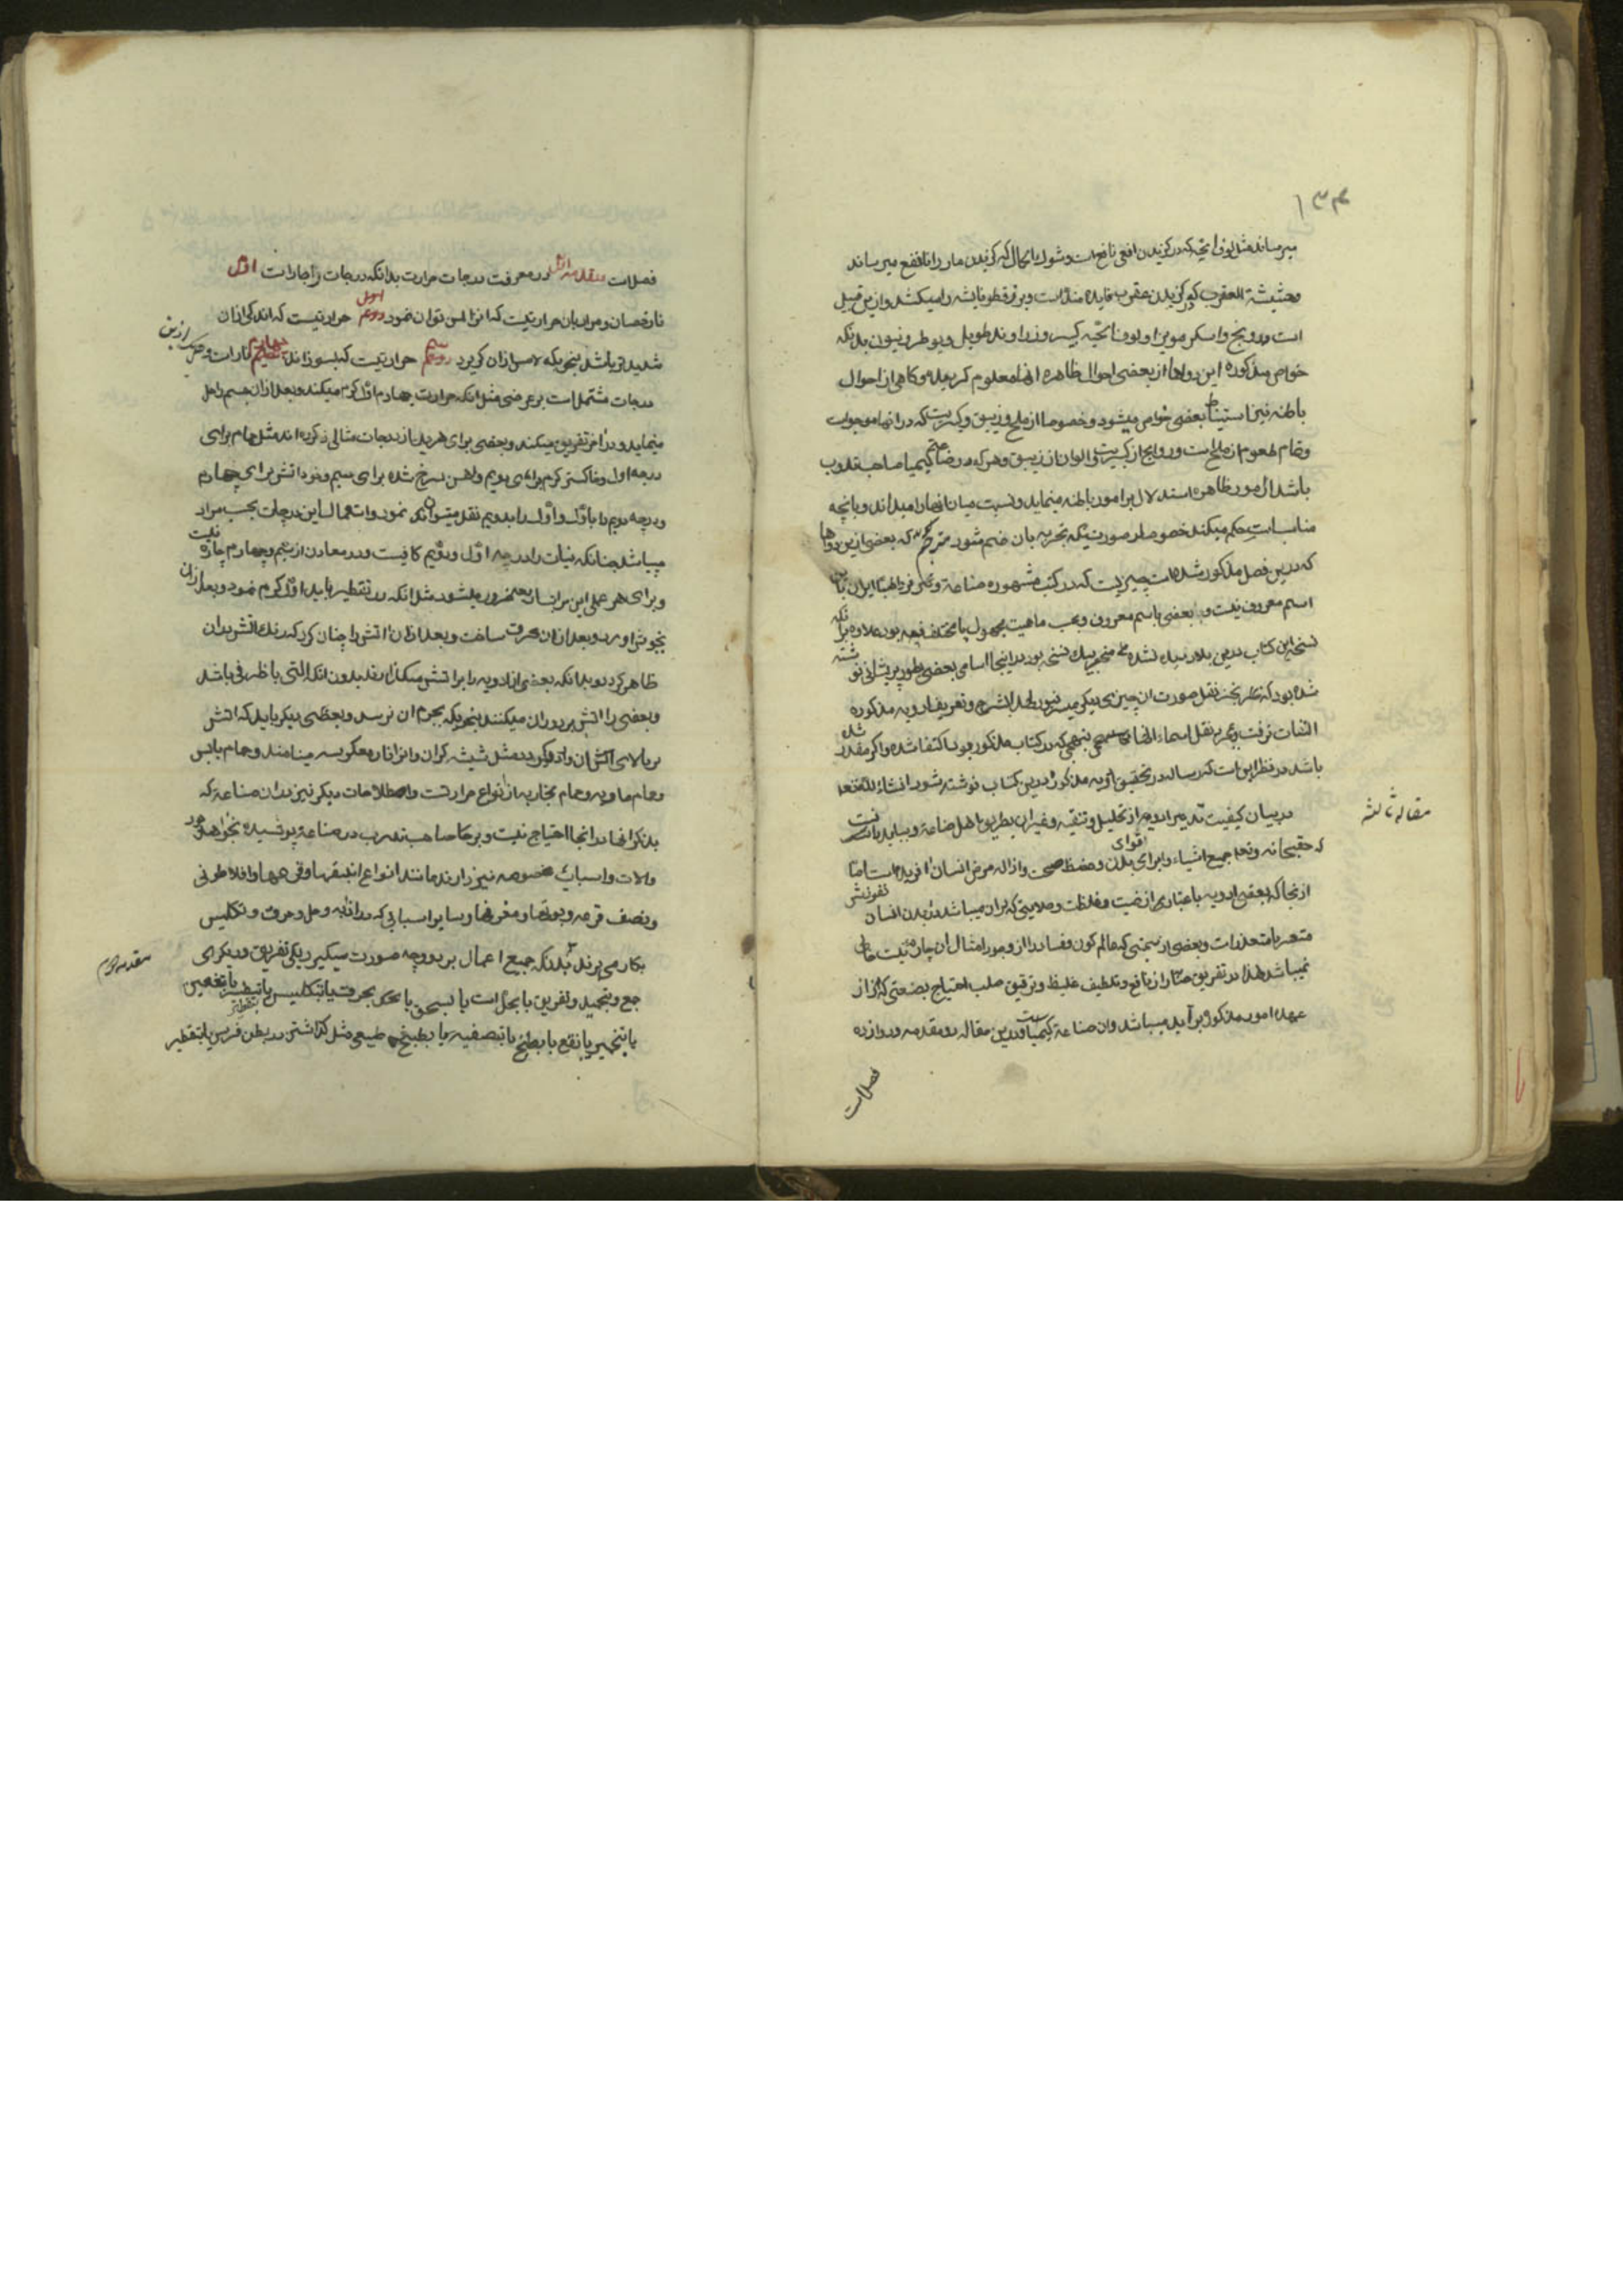 ۱۳۴
میرساند مثل لوفا یحیه که در گزیدن افعی نافع است و شوک الجمال که گزیدن مار را نافع میرساند
و حشیشة العقرب که در گزیدن عقرب فایده مند است و بزر قطونا پشه را میکشد و ازین قبیل
است درونج و اسکرمونیرا و لوفا یحیه کبیر و زراوند طویل و یوطرونیون بدانکه
خواص مذکوره این دواها از بعضی احوال ظاهره آنها معلوم کردیده و کاهی از احوال
باطنه نیز استنباط بعضی خواص میشود و خصوصا از ملح و زیبق و کبریت که در آنها موجود است
و تمام طعوم از ملح است و روایح از کبریت و الوان از زیبق و هر که در صناعت کیمیا صاحب تدرب
باشد از امور ظاهره استدلال بر امور باطنه مینماید و نسبت میان آنها را میداند و بآنچه
مناسبات حکم میکند خصوصا در صورتیکه تجربه بان ضم شود مترجم که بعضی ازین دواها
که درین فصل مذکور شده است چیزیست که در کتب مشهوره صناعة و نزد اطبا ایران باین
اسم معروف نیست و بعضی باسم معروف و بحسب ماهیت مجهول یا مختلف فیه بود علاوه برانکه
نسخه این کتاب درین بلاد دیده نشده منحصر بیک نسخه بود و در اینجا اسامی بعضی بطور پریشانی نوشته
شده بود که بغیر نقل صورت آن چیزی دیگر میسر نبود لهذا بشرح و تعریف ادویه مذکوره
التفات نرفت و بر نقل اسماء آنها بنهجی که در کتاب مذکور بود اکتفا شد و اگر مقدر شده
باشد در نظر این است که رساله در تحقیق ادویه مذکوره درین کتاب نوشته شود انشاء الله تعالی
مقاله ثالثه
در بیان کیفیت تدبیر ادویه از تحلیل و تنقیه و غیر آن بطریق اهل صناعة و بباید دانست
که حق سبحانه و تعالی جمیع اشیاء را برای قوای بدن و حفظ صحت و ازاله مرض انسان آفریده است اما
از آنجا که بعضی ادویه باعتبار ارضیت و غلظت و صلابتی که بران میباشد نفوذش در بدن انسان
متعسر یا متعذر است و بعضی از سمیتی که عالم کون و فساد را از وجود امثال آن چاره نیست خالی
نمیباشد لهذا در تفریق ضار از نافع و تلطیف غلیظ و ترقیق صلب احتیاج بصنعتی که از
عهده امور مذکوره برآید میباشد و آن صناعة کیمیاست و درین مقاله دو مقدمه و دوازده
فصل است
فصل است مقدمه اول در معرفت درجات حرارت بدانکه درجات نار چهار است اول
نار حضان و مراد بان حرارتیست که آنرا لمس توان نمود دویم حرارتیست که اندکی از آن
شدیدتر باشد بنحویکه لامس از آن گریزد سیم حرارتیست که بسوزاند چهارم نار است و هر یک ازین
درجات مشتمل است بر عرضی مثل آنکه حرارت چهارم اول گرم میکند و بعد از آن جسم را حل
مینماید و در آخر تفریق میکند و بعضی برای هر یک از درجات مثالی ذکر کرده اند مثل حمام برای
درجه اول و خاکستر گرم برای دویم و آهن سرخ شده برای سیم و خود آتش برای چهارم
و درجه دویم را باول و اول را بدویم نقل میتوان نمود و استعمال این درجات بحسب مراد
میباشد چنانکه نبات را درجه اول و دویم کافیست و در معادن از سیم و چهارم چاره نیست
و برای هر عملی این مراتب ضرور میشود مثل آنکه در تقطیر باید اول گرم نمود و بعد از آن
بجوش آورد و بعد از آن محرق ساخت و بعد از آن آتش را چنان کرد که رنگ آتش در آن
ظاهر گردد و بدانکه بعضی از ادویه را بر آتش میگذارند بدون آنکه آلتی یا ظرفی باشد
و بعضی را آتش بر دور آن میکنند بنحویکه بجرم آن نرسد و بعضی دیگر باید که آتش
بر بالای آن و اذ کردد مثل شیشه گران و آنرا نار معکوسه مینامند و حمام یابس
و حمام ماویه و حمام بخاریه از انواع حرارتست و اصطلاحات دیگر نیز در آن صناعة که
بذکر آنها در اینجا احتیاج نیست و بر صاحب تدرب در صناعة پوشیده نخواهد بود
و آلات و اسباب مخصوصه نیز دارند مانند انواع انبیقها و قرعها و افلاطونی
و نصف قرعه و بوتها و مغرفها و سایر اسبابی که در اذابه و حل و حرق و تکلیس
بکار می برند
مقدمه دوم
بدانکه جمیع اعمال بر دو وجه صورت میگیرد یکی تفریق و دیگری
جمع و تجمید و تفریق یا بحل است یا بسحق یا بحک یا بحرق یا بتکلیس یا بتقطیر یا بتعفین
یا بتخمیر یا بنقع یا بطبخ یا بتصفیه یا بطبخ طبیعی مثل گذاشتن در بطن فرس یا بتقطیر